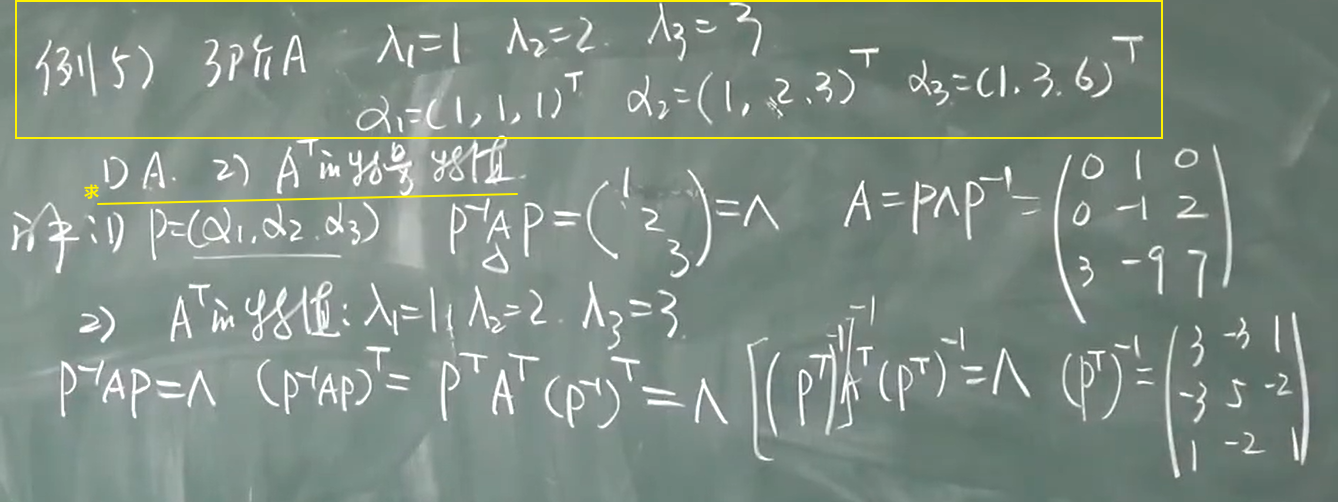 例5) 3阶A λ₁=1 λ₂=2. λ₃=3
α₁=(1,1,1)ᵀ α₂=(1,2,3)ᵀ α₃=(1.3.6)ᵀ
求 1) A. 2) Aᵀ的特征向量 特征值.
解: 1) P=(α₁.α₂.α₃) P⁻¹AP=(1 2 3)=Λ A=PΛP⁻¹=(0 1 0 / 0 -1 2 / 3 -9 7)
2) Aᵀ的特征值: λ₁=1, λ₂=2. λ₃=3.
P⁻¹AP=Λ (P⁻¹AP)ᵀ= PᵀAᵀ(P⁻¹)ᵀ=Λ [(Pᵀ)⁻¹]⁻¹Aᵀ(Pᵀ)⁻¹=Λ (Pᵀ)⁻¹=(3 -3 1 / -3 5 -2 / 1 -2 1)